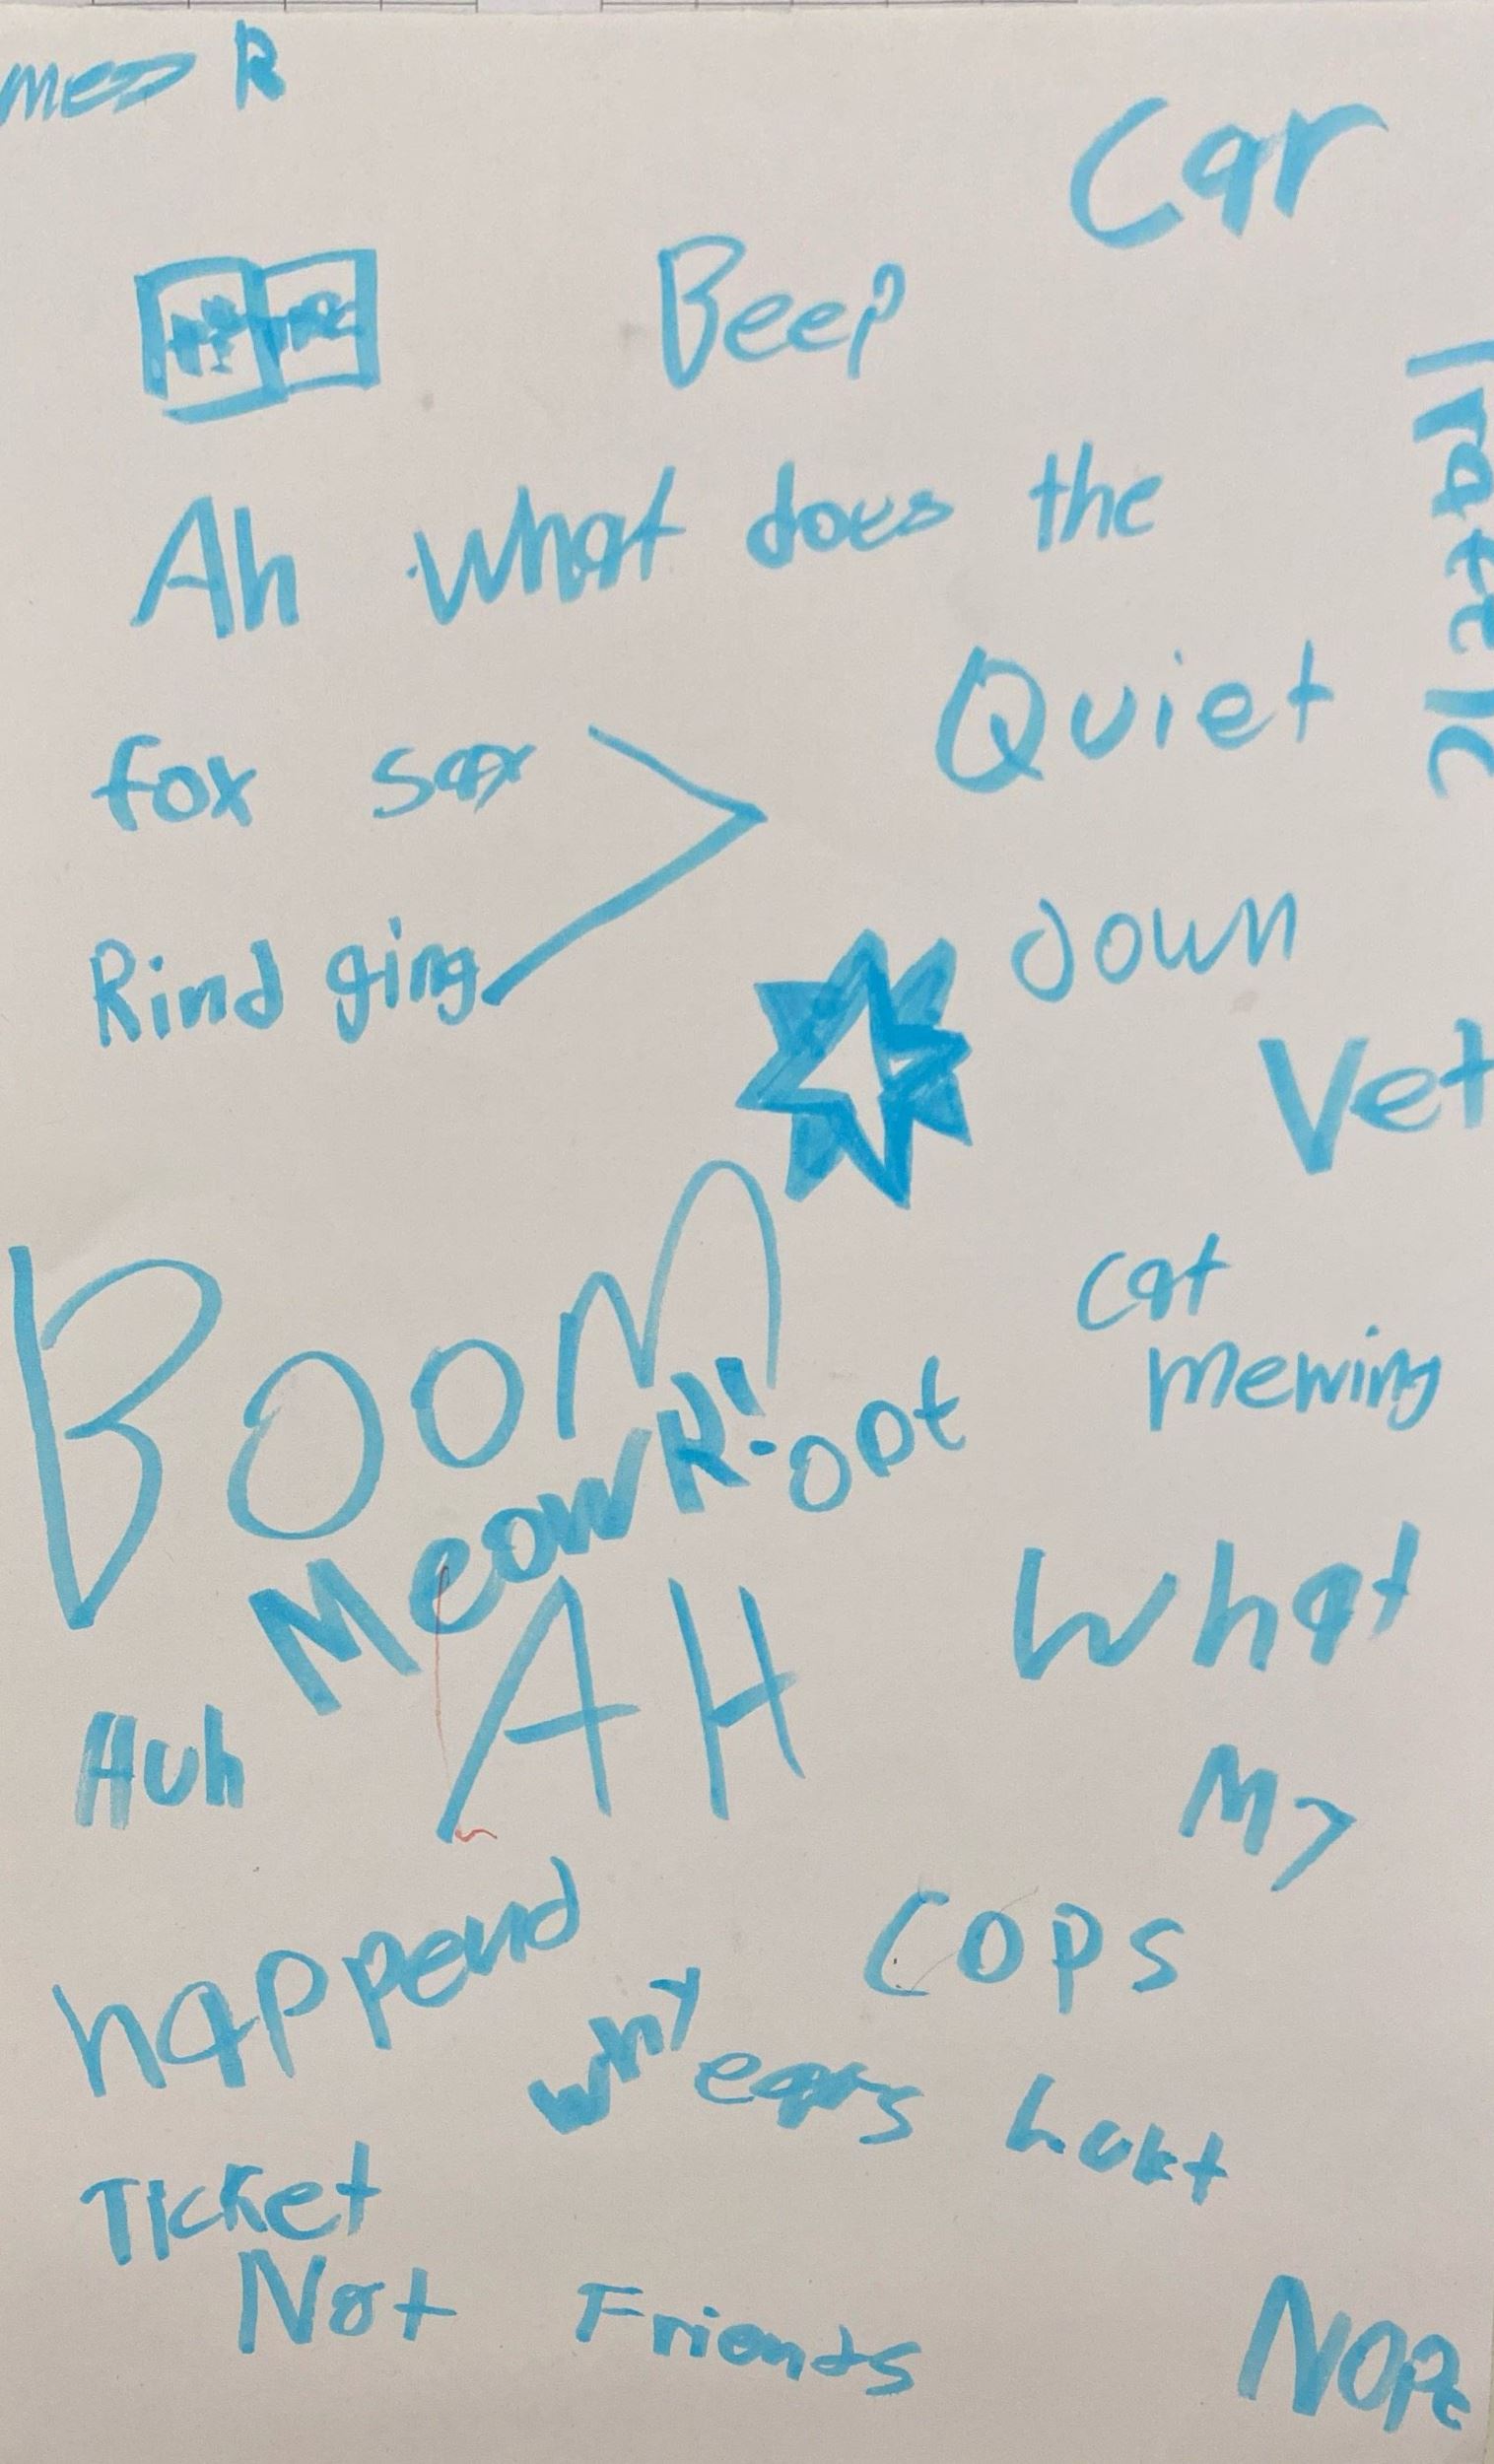 mes R
Car
Beep
Ah what does the
Quiet
fox say
down
Rind ging
Vet
BOOM
cat
mewing
Meow
What
AH
Huh
My
happend
cops
why ears hurt
Ticket
Not Friends
Nope